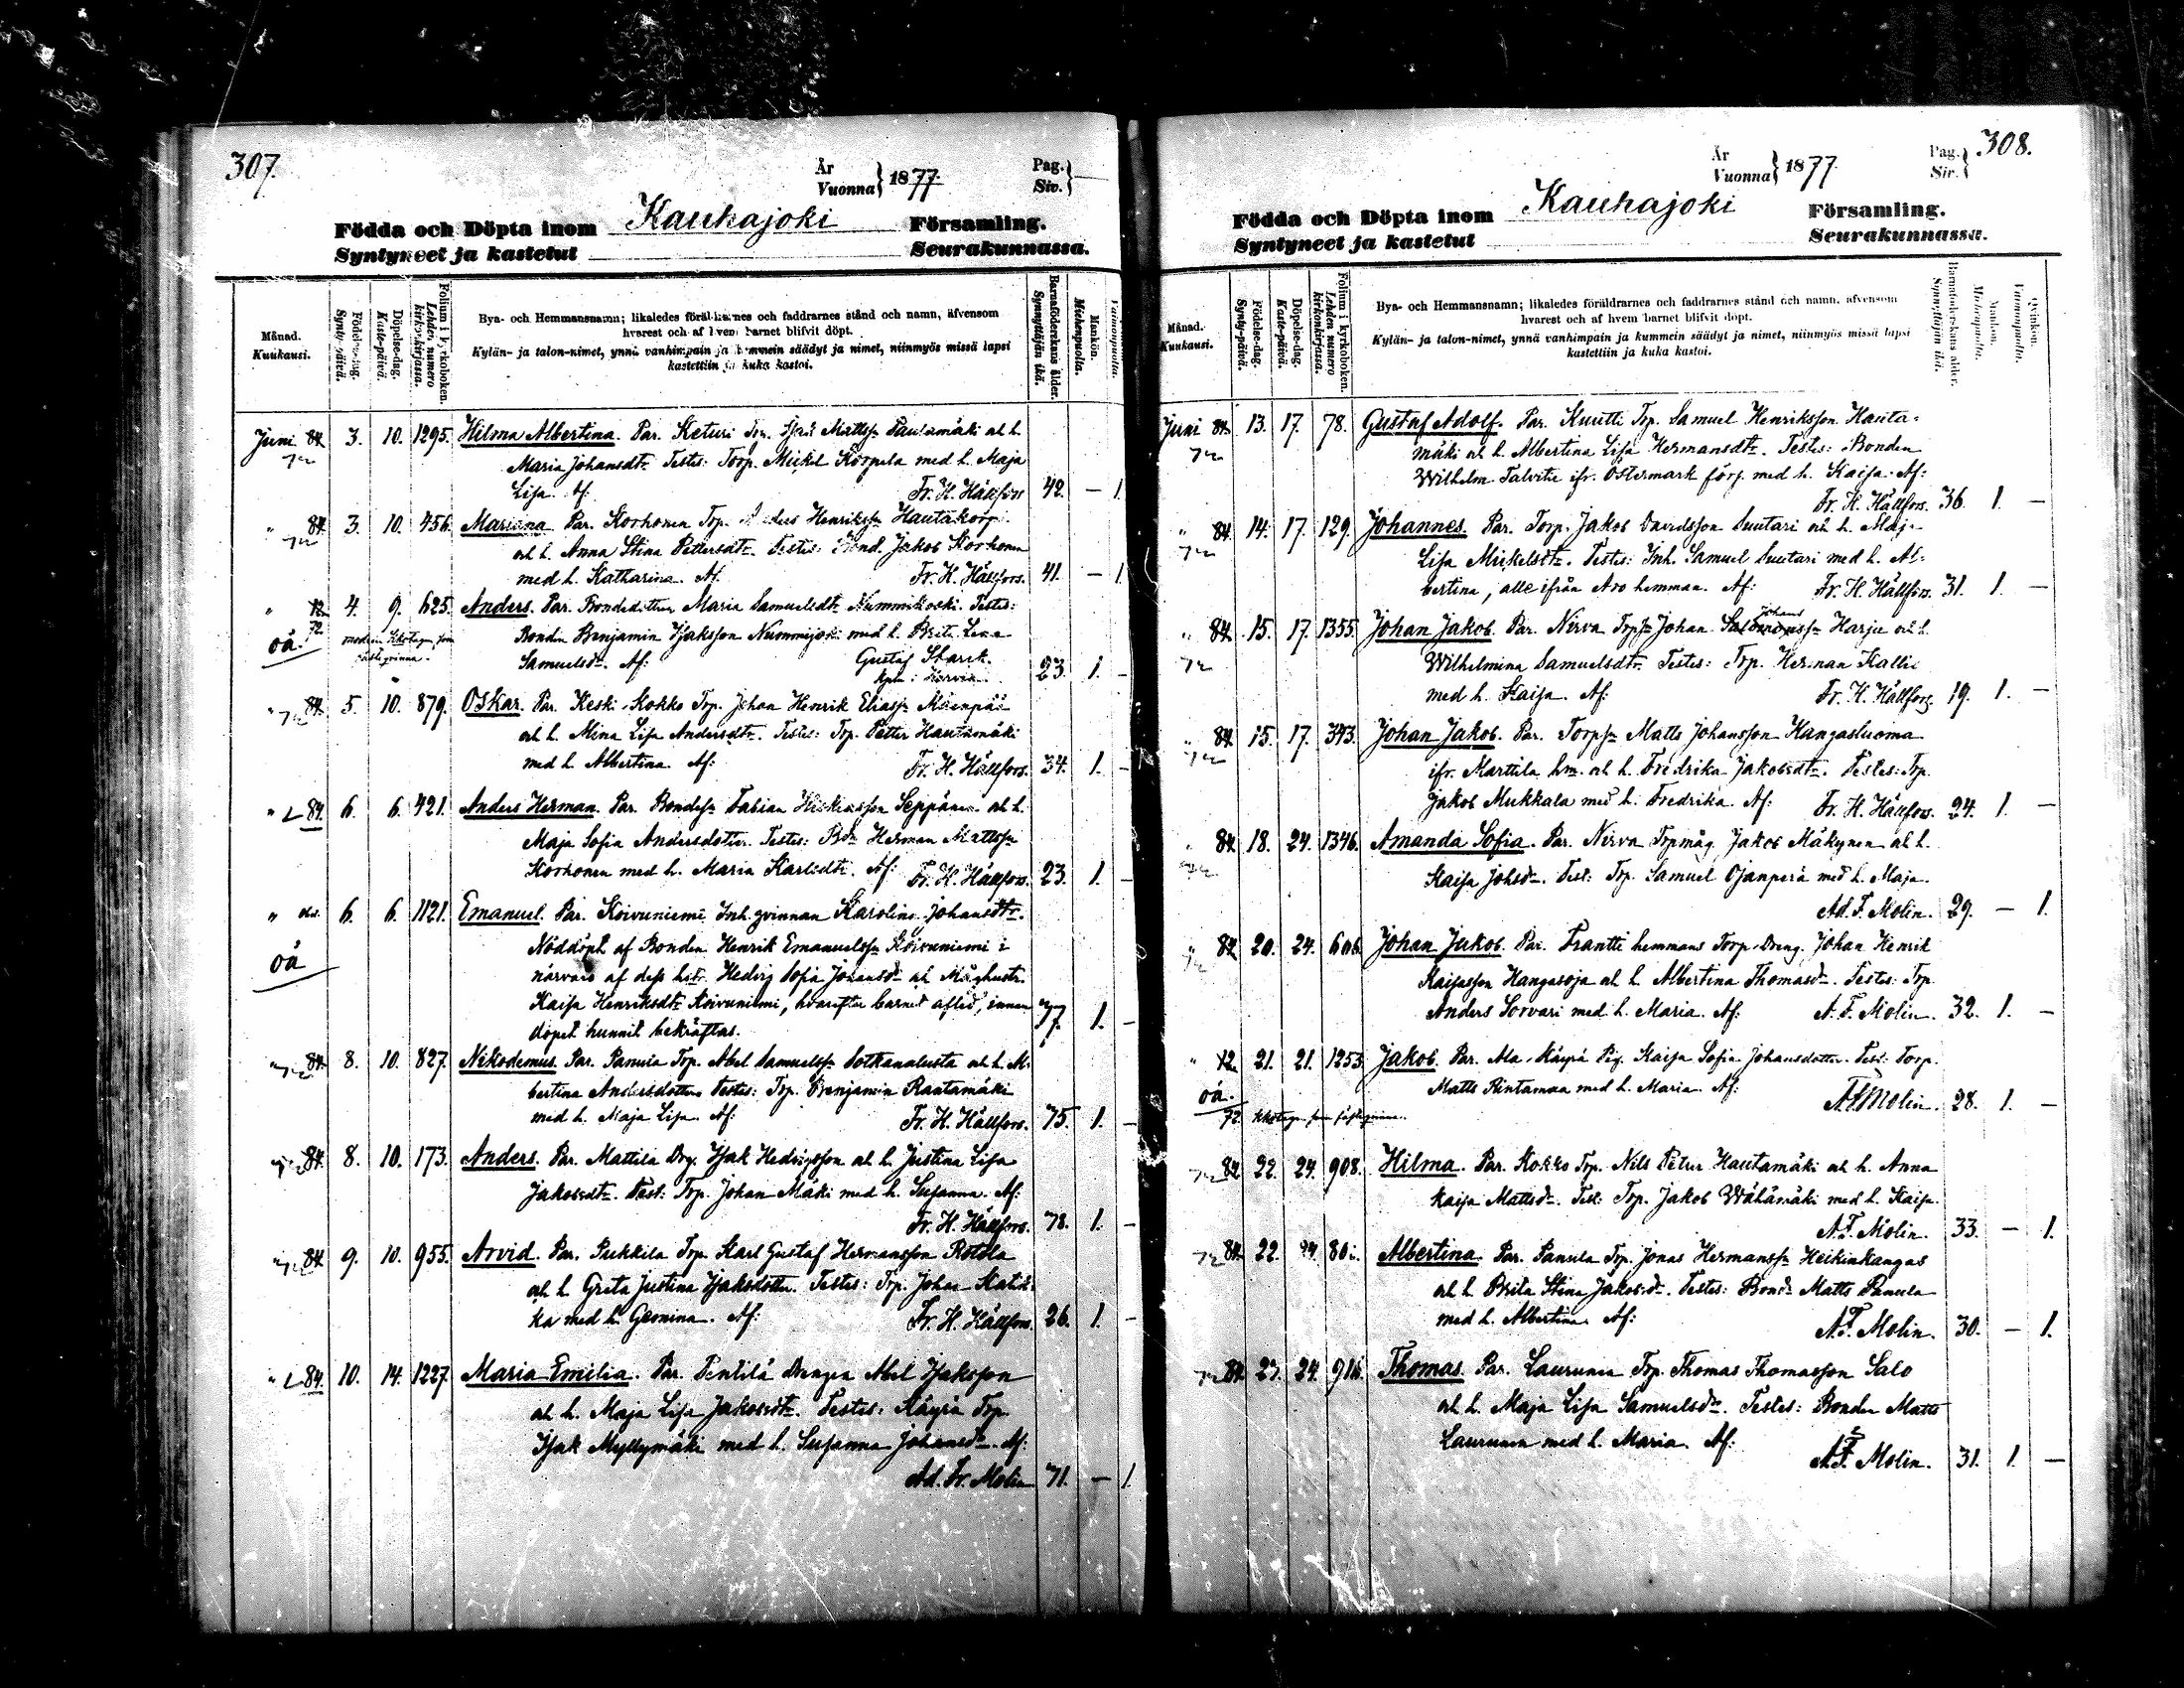 307.
År
Vuonna } 1877.
Pag.
Siv. }
Födda och Döpta inom Kauhajoki Församling.
Syntyneet ja kastetut Seurakunnassa.
Månad.
Kuukausi.
Födelse-dag.
Synty-päivä.
Döpelse-dag.
Kaste-päivä.
Folium i kyrkoboken.
Lehden numero kirkonkirjassa.
Bya- och Hemmansnamn; likaledes föräldrarnes och faddrarnes stånd och namn, äfvensom
hvarest och af hvem barnet blifvit döpt.
Kylän- ja talon-nimet, ynnä vanhimpain ja kummein säädyt ja nimet, niinmyös missä lapsi
kastettiin ja kuka kastoi.
Barnaföderskans ålder.
Synnyttäjän ikä.
Mankön.
Miehenpuolia.
Vaimonpuolia.
Juni 84. 3. 10. 1295. Hilma Albertina. Par. Keturi Mattss Rautamäki och h.
Maria Johansdtr. Testes: Torp. Mickel Korpela med h. Maja
Lisa. Af: Fr. H. Hällfors 42. — 1.
" 84. 3. 10. 456. Mariana. Par. Korhonen Torp. Henrikss Hautakorpi
och h. Anna Stina Pettersdtr. Testes: Bond. Jakob Korhonen
med h. Katharina. Af. Fr. H. Hällfors. 41. — 1.
" 4. 9. 625. Anders. Par. Bondedottren Maria Samuelsdtr Nummikoski. Testes:
oä. Bonden Benjamin Isaksson Nummijoki med h. Brita Lena
Samuelsdr. Af: Gustaf Starck. 23. 1. —
" 84. 5. 10. 879. Oskar. Par. Keski-Kokko Torp. Johan Henrik Eliass Mäenpää
och h. Mina Lisa Andersdtr. Testes: Torp. Petter Hautamäki
med h. Albertina. Af: Fr. H. Hällfors. 34. 1. —
" 84. 6. 6. 421. Anders Herman. Par. Bondess Fabian Seppänen och h.
Maja Sofia Andersdotter. Testes: Herman Mattss
Korhonen med h. Maria Karlsdtr. Af: Fr. H. Hällfors. 23. 1. —
" 6. 6. 1121. Emanuel. Par. Koivuniemi Inh. qvinnan Karolina Johansdtr.
oä Nöddöpt af Bonden Henrik Emanuelss Koivuniemi i
närvaro af dess hstr. Hedvig Sofia Johansd och Måghustr.
Kaisa Henriksdtr Koivuniemi, hvarefter barnet afled, innan
döpet hunnit bekräftas. 77. 1. —
" 84. 8. 10. 827. Nikodemus. Par. Panula Torp. Abel Samuelss Sotkanalusta och h. Al-
bertina Andersdotter Testes: Torp. Benjamin Rautamäki
med h. Maja Lisa. Af: Fr. H. Hällfors. 75. 1. —
84. 8. 10. 173. Anders. Par. Mattila Drg. Isak Hedvigsson och h. Justina Lisa
Jakobsdtr. Test: Torp. Johan Mäki med h. Susanna. Af:
Fr. H. Hällfors. 78. 1. —
84. 9. 10. 955. Arvid. Par. Pukkila Torp. Karl Gustaf Hermansson Rotola
och h. Greta Justina Isaksdotter. Testes: Torp. Johan
ka med h. Af: Fr. H. Hällfors. 26. 1. —
" 84. 10. 14. 1227. Maria Emilia. Par. Pentilä Drengen Abel Isaksson
och h. Maja Lisa Jakobsdtr. Testes: Käyrä Torp.
Isak Myllymäki med h. Susanna Johansdr. Af:
Ad. Fr. Molin 71. — 1.
308.
År
Vuonna } 1877.
Pag.
Siv. }
Födda och Döpta inom Kauhajoki Församling.
Syntyneet ja kastetut Seurakunnassa.
Månad.
Kuukausi.
Födelse-dag.
Synty-päivä.
Döpelse-dag.
Kaste-päivä.
Folium i kyrkoboken.
Lehden numero kirkonkirjassa.
Bya- och Hemmansnamn; likaledes föräldrarnes och faddrarnes stånd och namn, äfvensom
hvarest och af hvem barnet blifvit döpt.
Kylän- ja talon-nimet, ynnä vanhimpain ja kummein säädyt ja nimet, niinmyös missä lapsi
kastettiin ja kuka kastoi.
Barnaföderskans ålder.
Synnyttäjän ikä.
Mankön.
Miehenpuolia.
Qvinkön.
Vaimonpuolia.
Juni 84. 13. 17. 78. Gustaf Adolf. Par. Knuutti Torp. Samuel Henriksson Hauta-
mäki och h. Albertina Lisa Hermansdtr. Testes: Bonden
Wilhelm Talvitie ifr. Östermark förs. med h. Kaisa. Af:
Fr. H. Hällfors. 36. 1. —
" 84. 14. 17. 129. Johannes. Par. Torp. Jakob Davidsson Suutari och h. Maja
Lisa Mickelsdtr. Testes: Inh. Samuel Suutari med h. Al-
bertina, alle ifrån Aro hemman. Af: Fr. H. Hällfors. 31. 1. —
" 84. 15. 17. 1355. Johan Jakob. Par. Nirva Torpss Johan Johans Harju och h.
Wilhelmina Samuelsdtr. Testes: Torp. Herman Kallio
med h. Kaisa. Af: Fr. H. Hällfors. 19. 1. —
" 84. 15. 17. 393. Johan Jakob. Par. Torpss Matts Johansson Kangasluoma
ifr. Marttila hm. och h. Fredrika Jakobsdtr. Testes: Torp.
Jakob Mukkala med h. Fredrika. Af: Fr. H. Hällfors. 24. 1. —
84. 18. 24. 1346. Amanda Sofia. Par. Nirva Torpmåg Jakob Mäkynen och h.
Kaisa Johsdr. Test: Torp. Samuel Ojanperä med h. Maja.
Ad. F. Molin. 29. — 1.
" 84. 20. 24. 606. Johan Jakob. Par. Frantti hemmans Torp. Dreng Johan Henrik
Kaisasson Hangasoja och h. Albertina Thomasdr. Testes: Torp.
Anders Sorvari med h. Maria. Af: A. F. Molin. 32. 1. —
" 21. 21. 1253. Jakob. Par. Ala-Käyrä Pig. Kaisa Sofia Johansdotter. Test: Torp.
oä. Matts Rintamaa med h. Maria. Af:
A. F. Molin. 28. 1. —
84. 22. 24. 908. Hilma. Par. Kokko Torp. Nils Petter Hautamäki och h. Anna
Kaisa Mattsdr. Test: Torp. Jakob Wähämäki med h. Kaisa.
A. F. Molin. 33. — 1.
84. 22. 24. Albertina. Par. Panula Torp. Jonas Hermanss Heikinkangas
och h. Brita Stina Jakobsdr. Testes: Bond. Matts Panula
med h. Albertina. Af: A. F. Molin. 30. — 1.
84. 23. 24. 916. Thomas. Par. Laurunen Torp. Thomas Thomasson Salo
och h. Maja Lisa Samuelsdr. Testes: Bonden Matts
Laurunen med h. Maria. Af: A. F. Molin. 31. 1. —